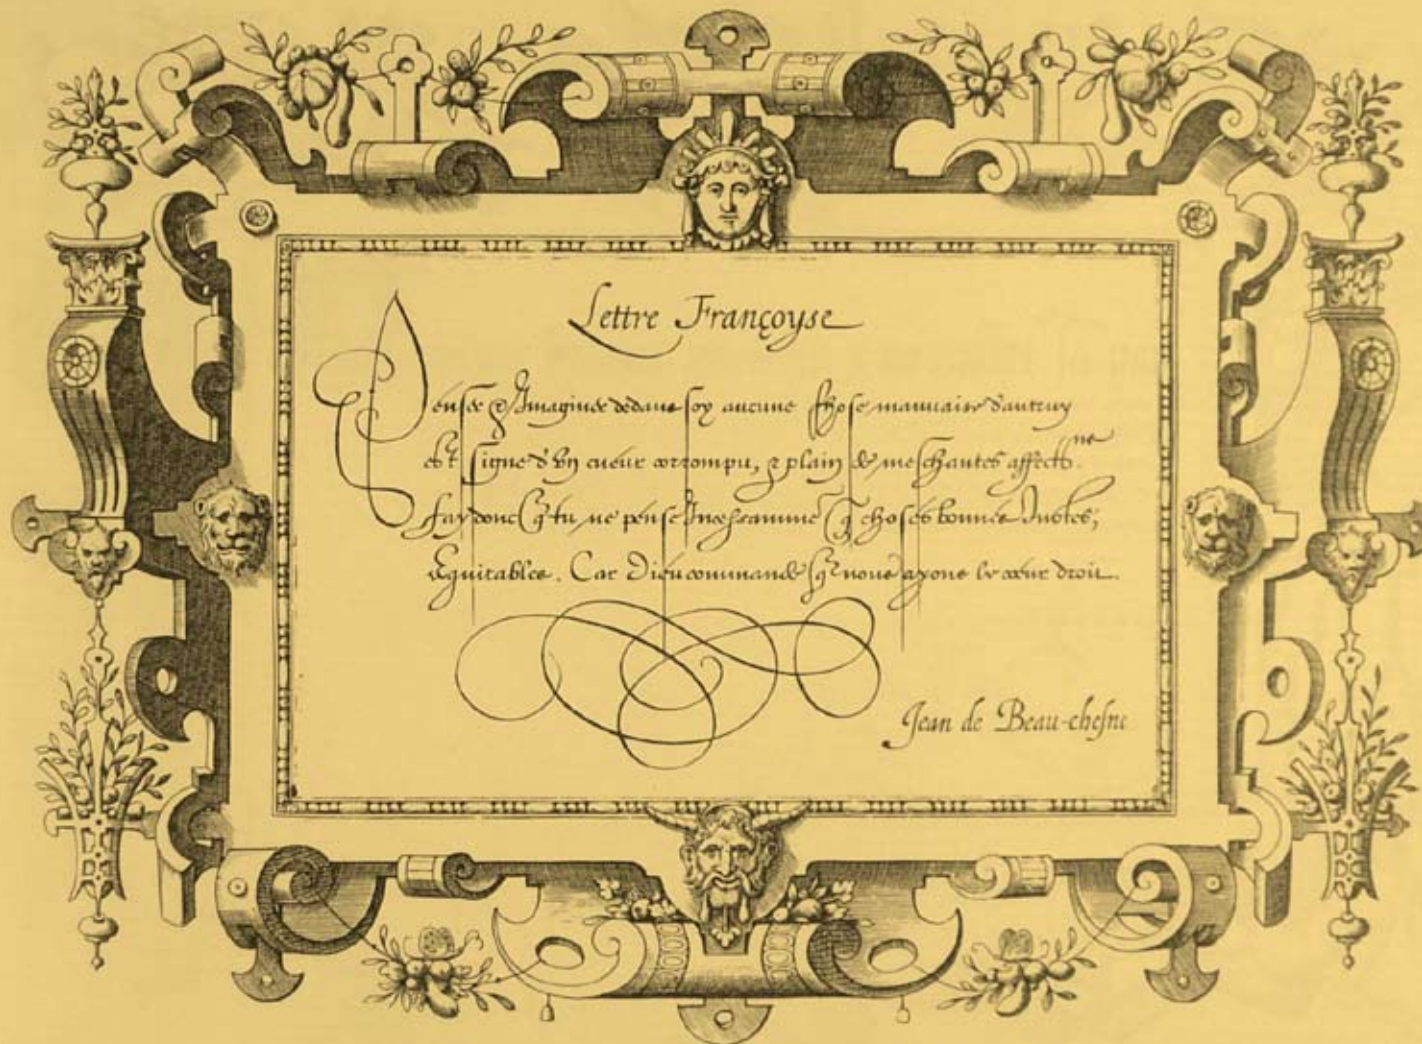 Lettre Françoyse
Penser & Imaginer dedans soy aucune chose mauvaise d'autruy
est signe d'vn cueur corrompu, & plain de meschantes affectõ.ns
fay donc q̃ tu ne pense Incessamme~t q̃ choses bonnes Iustes,
Equitables. Car Dieu commande q̃ nous ayons le coeur droit.
Jean de Beau-chesne